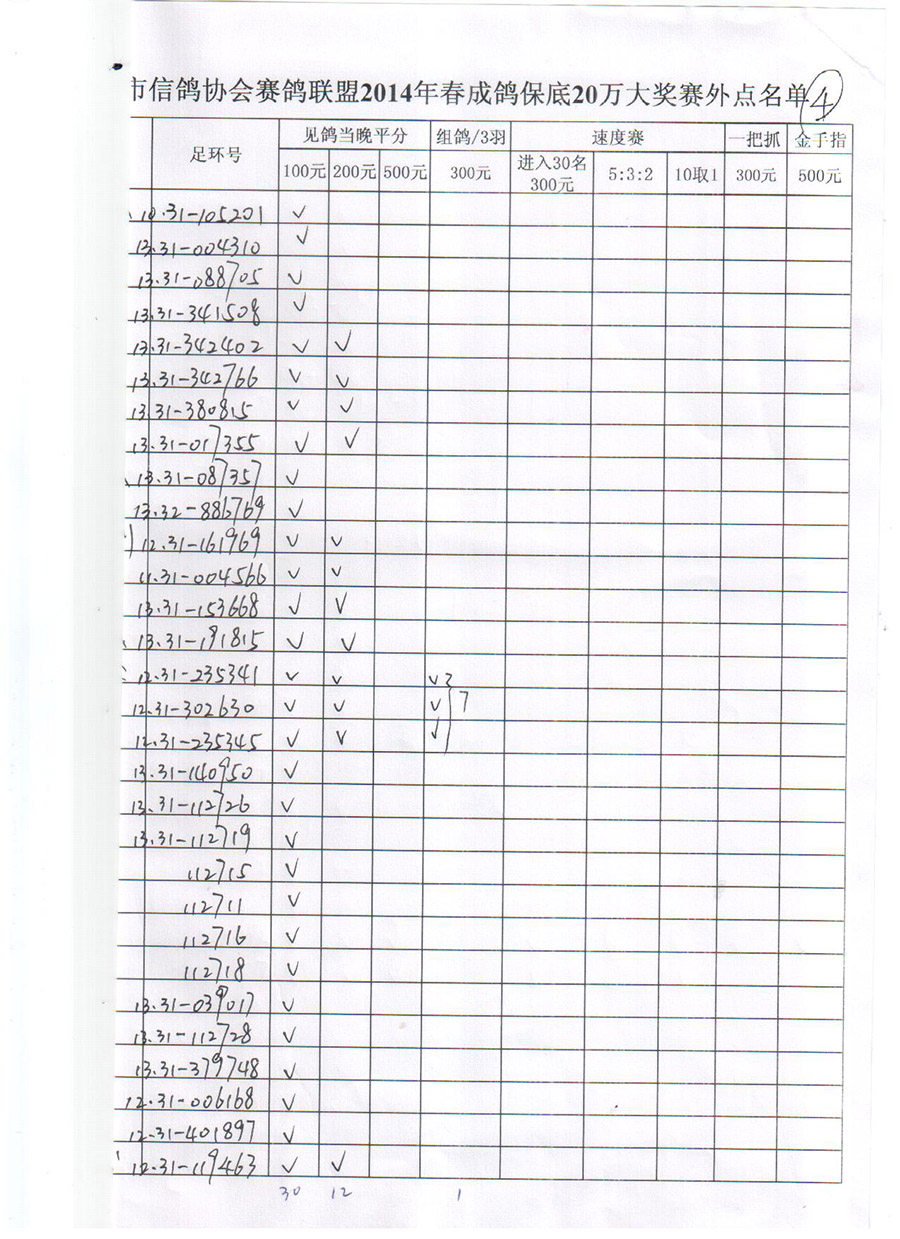 市信鸽协会赛鸽联盟2014年春成鸽保底20万大奖赛外点名单 ④
足环号 见鸽当晚平分 组鸽/3羽 速度赛 一把抓 金手指
100元 200元 500元 300元 进入30名300元 5:3:2 10取1 300元 500元
10.31-105201 √
13.31-004310 √
13.31-088705 √
13.31-341508 √
13.31-342402 √ √
13.31-342766 √ √
13.31-380815 √ √
13.31-017355 √ √
13.31-087357 √
13.32-886769 √
12.31-161969 √ √
11.31-004566 √ √
13.31-153668 √ √
13.31-191815 √ √
12.31-235341 √ √ √
12.31-302630 √ √ √
12.31-235345 √ √ √
13.31-140950 √
13.31-112726 √
13.31-112719 √
112715 √
112711 √
112716 √
112718 √
13.31-039017 √
13.31-112728 √
13.31-379748 √
12.31-006168 √
12.31-401897 √
12.31-119463 √ √
30 12 1